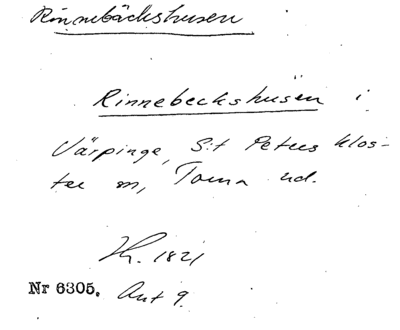 Rinnebäckshusen
Rinnebeckshusen i
Värpinge, S:t Peters klos-
ter sn, Torna hd.
Hr. 1821
Nr 6305. Avt 9.